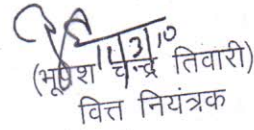 11/3/10
(भूपेश चन्द्र तिवारी)
वित्त नियंत्रक